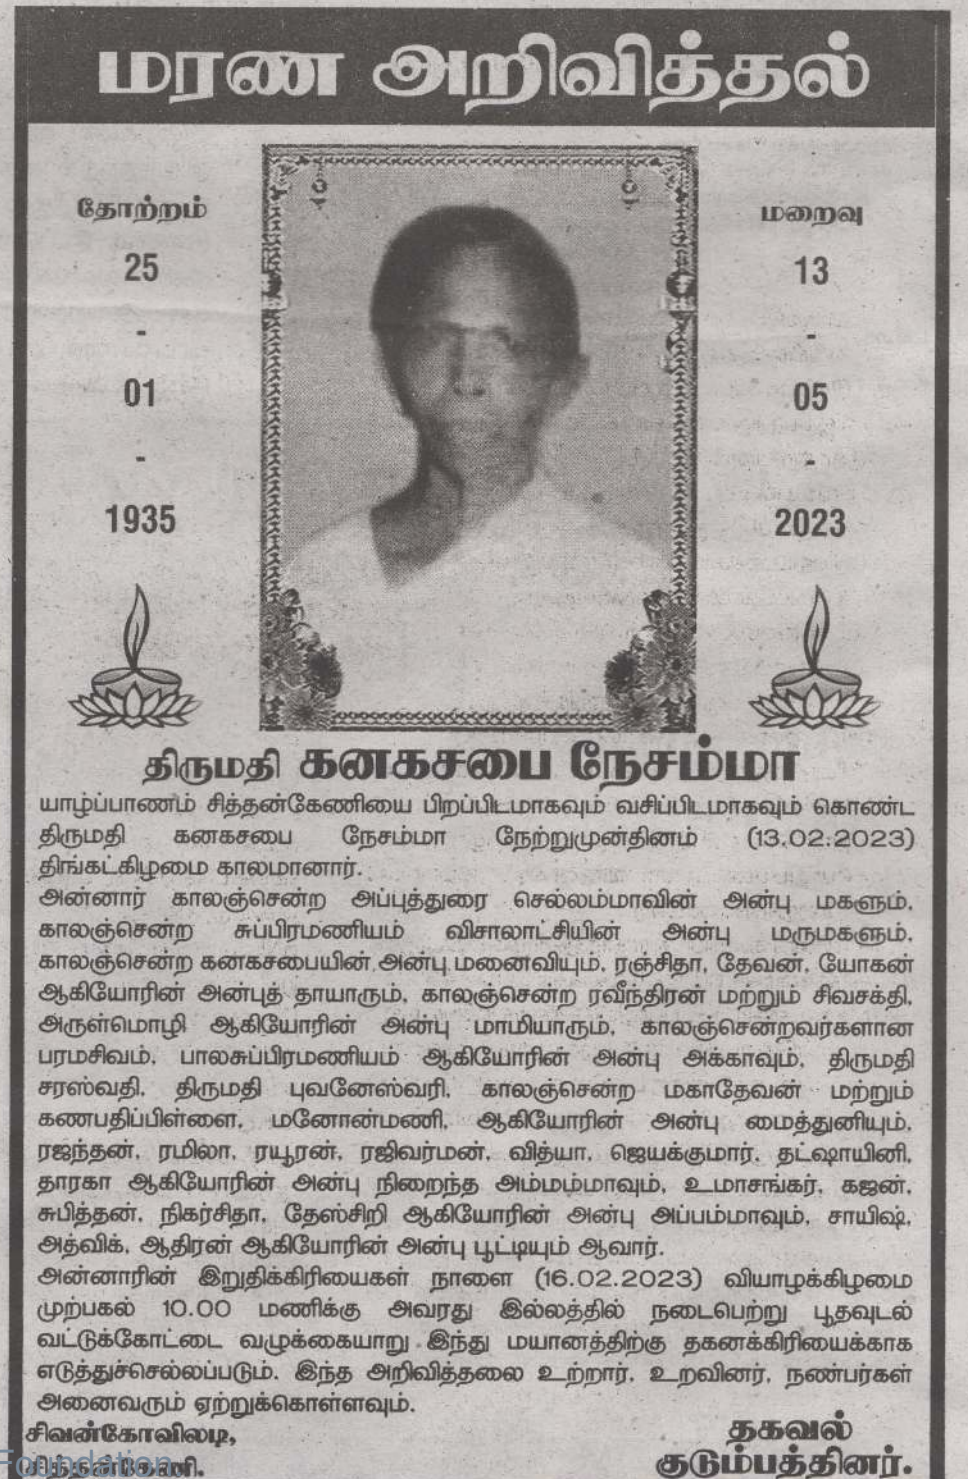 மரண அறிவித்தல்
தோற்றம்
25
-
01
-
1935
மறைவு
13
-
05
-
2023
திருமதி கனகசபை நேசம்மா
யாழ்ப்பாணம் சித்தன்கேணியை பிறப்பிடமாகவும் வசிப்பிடமாகவும் கொண்ட
திருமதி கனகசபை நேசம்மா நேற்றுமுன்தினம் (13.02.2023)
திங்கட்கிழமை காலமானார்.
அன்னார் காலஞ்சென்ற அப்புத்துரை செல்லம்மாவின் அன்பு மகளும்,
காலஞ்சென்ற சுப்பிரமணியம் விசாலாட்சியின் அன்பு மருமகளும்,
காலஞ்சென்ற கனகசபையின் அன்பு மனைவியும், ரஞ்சிதா, தேவன், யோகன்
ஆகியோரின் அன்புத் தாயாரும், காலஞ்சென்ற ரவீந்திரன் மற்றும் சிவசக்தி,
அருள்மொழி ஆகியோரின் அன்பு மாமியாரும், காலஞ்சென்றவர்களான
பரமசிவம், பாலசுப்பிரமணியம் ஆகியோரின் அன்பு அக்காவும், திருமதி
சரஸ்வதி, திருமதி புவனேஸ்வரி, காலஞ்சென்ற மகாதேவன் மற்றும்
கணபதிப்பிள்ளை, மனோன்மணி, ஆகியோரின் அன்பு மைத்துனியும்,
ரஜந்தன், ரமிலா, ரயூரன், ரஜிவர்மன், வித்யா, ஜெயக்குமார், தட்ஷாயினி,
தாரகா ஆகியோரின் அன்பு நிறைந்த அம்மம்மாவும், உமாசங்கர், கஜன்,
சுபித்தன், நிகர்சிதா, தேஸ்சிறி ஆகியோரின் அன்பு அப்பம்மாவும், சாயிஷ்,
அத்விக், ஆதிரன் ஆகியோரின் அன்பு பூட்டியும் ஆவார்.
அன்னாரின் இறுதிக்கிரியைகள் நாளை (16.02.2023) வியாழக்கிழமை
முற்பகல் 10.00 மணிக்கு அவரது இல்லத்தில் நடைபெற்று பூதவுடல்
வட்டுக்கோட்டை வழுக்கையாறு இந்து மயானத்திற்கு தகனக்கிரியைக்காக
எடுத்துச்செல்லப்படும். இந்த அறிவித்தலை உற்றார், உறவினர், நண்பர்கள்
அனைவரும் ஏற்றுக்கொள்ளவும்.
சிவன்கோவிலடி,
சித்தன்கேணி.
தகவல்
குடும்பத்தினர்.
Foundation